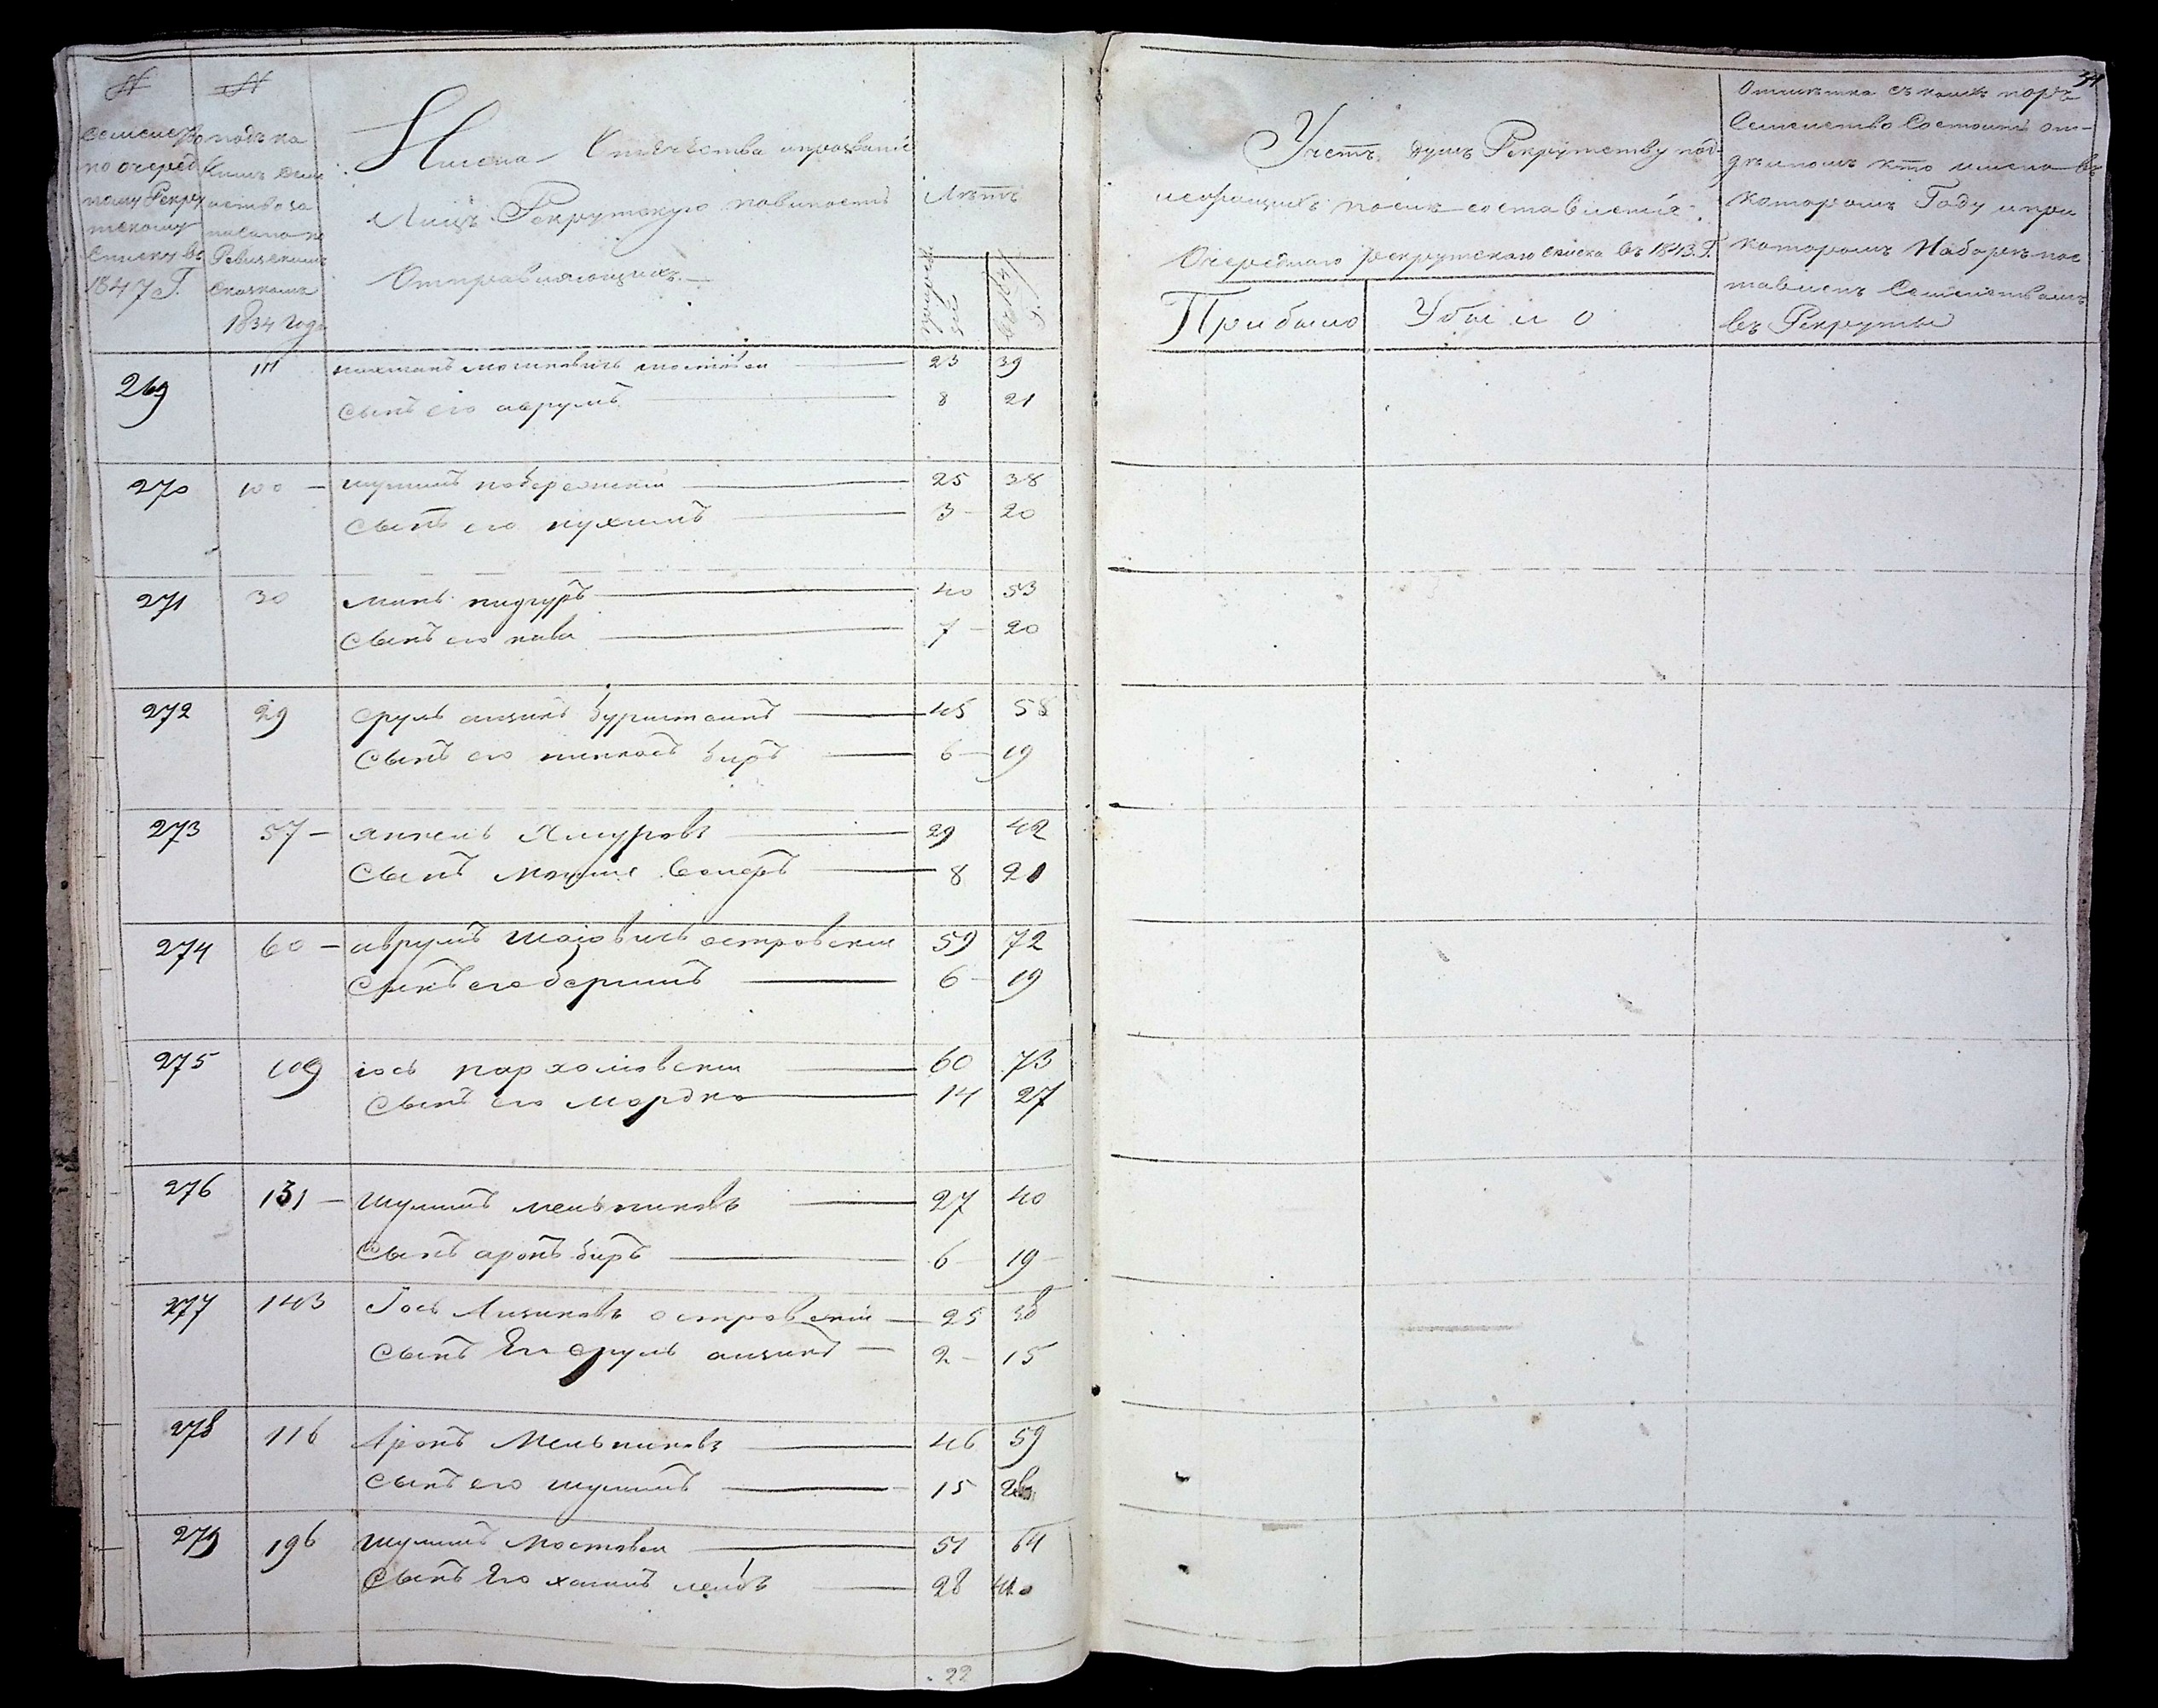 №
Семействъ
по очеред
ному Рекру
тскому
Списку въ
1847 Г.
№
подъ ка
кимъ Семе
 йство за
писано по
Ревизскимъ
Сказкамъ
1834 года
Имена Отечества и прозваніе
Лицъ Рекрутскую повинность
Отправляющихъ.
Лѣтъ
269 111 нахманъ мошковичъ мостовей 23 39
сынъ его аврумъ 8 21
270 100 – шулимъ побережский 25 38
сынъ его нухимъ 3 – 20
271 30 40 53
сынъ его 7 – 20
272 29 сруль аизикъ бурштеинъ 45 58
сынъ его пинкасъ беръ 6 – 19
273 57 – янкель Хмуровъ 29 42
Сынъ Мошко 8 21
274 60 – аврумъ шаіовичъ островский 59 72
Сынъ его бершмъ 6 – 19
275 109 іось пархомовский 60 73
Сынъ его мордко 14 27
276 131 – шулимъ мельниковъ 27 40
Сынъ аронъ беръ 6 – 19
277 143 Іось Аизиковъ островский 25 38
Сынъ Его сруль аизикъ 2 – 15
278 116 Аронъ Мельниковъ 46 59
сынъ его шулимъ 15
279 196 шулимъ мостовеи 51 64
Сынъ Его хаимъ леибъ 28
22
34
Учетъ душъ Рекрутству под
лежащихъ послѣ составленія
Очереднаго рекрутскаго списка въ 1843. Г.
Прибыло
Убыло
Отмѣтка съ какихъ поръ
Семейство Состоитъ от–
дѣльномъ кто имена въ
Которомъ Году и при
которомъ Наборѣ пос
тавленъ Семействомъ
въ Рекруты